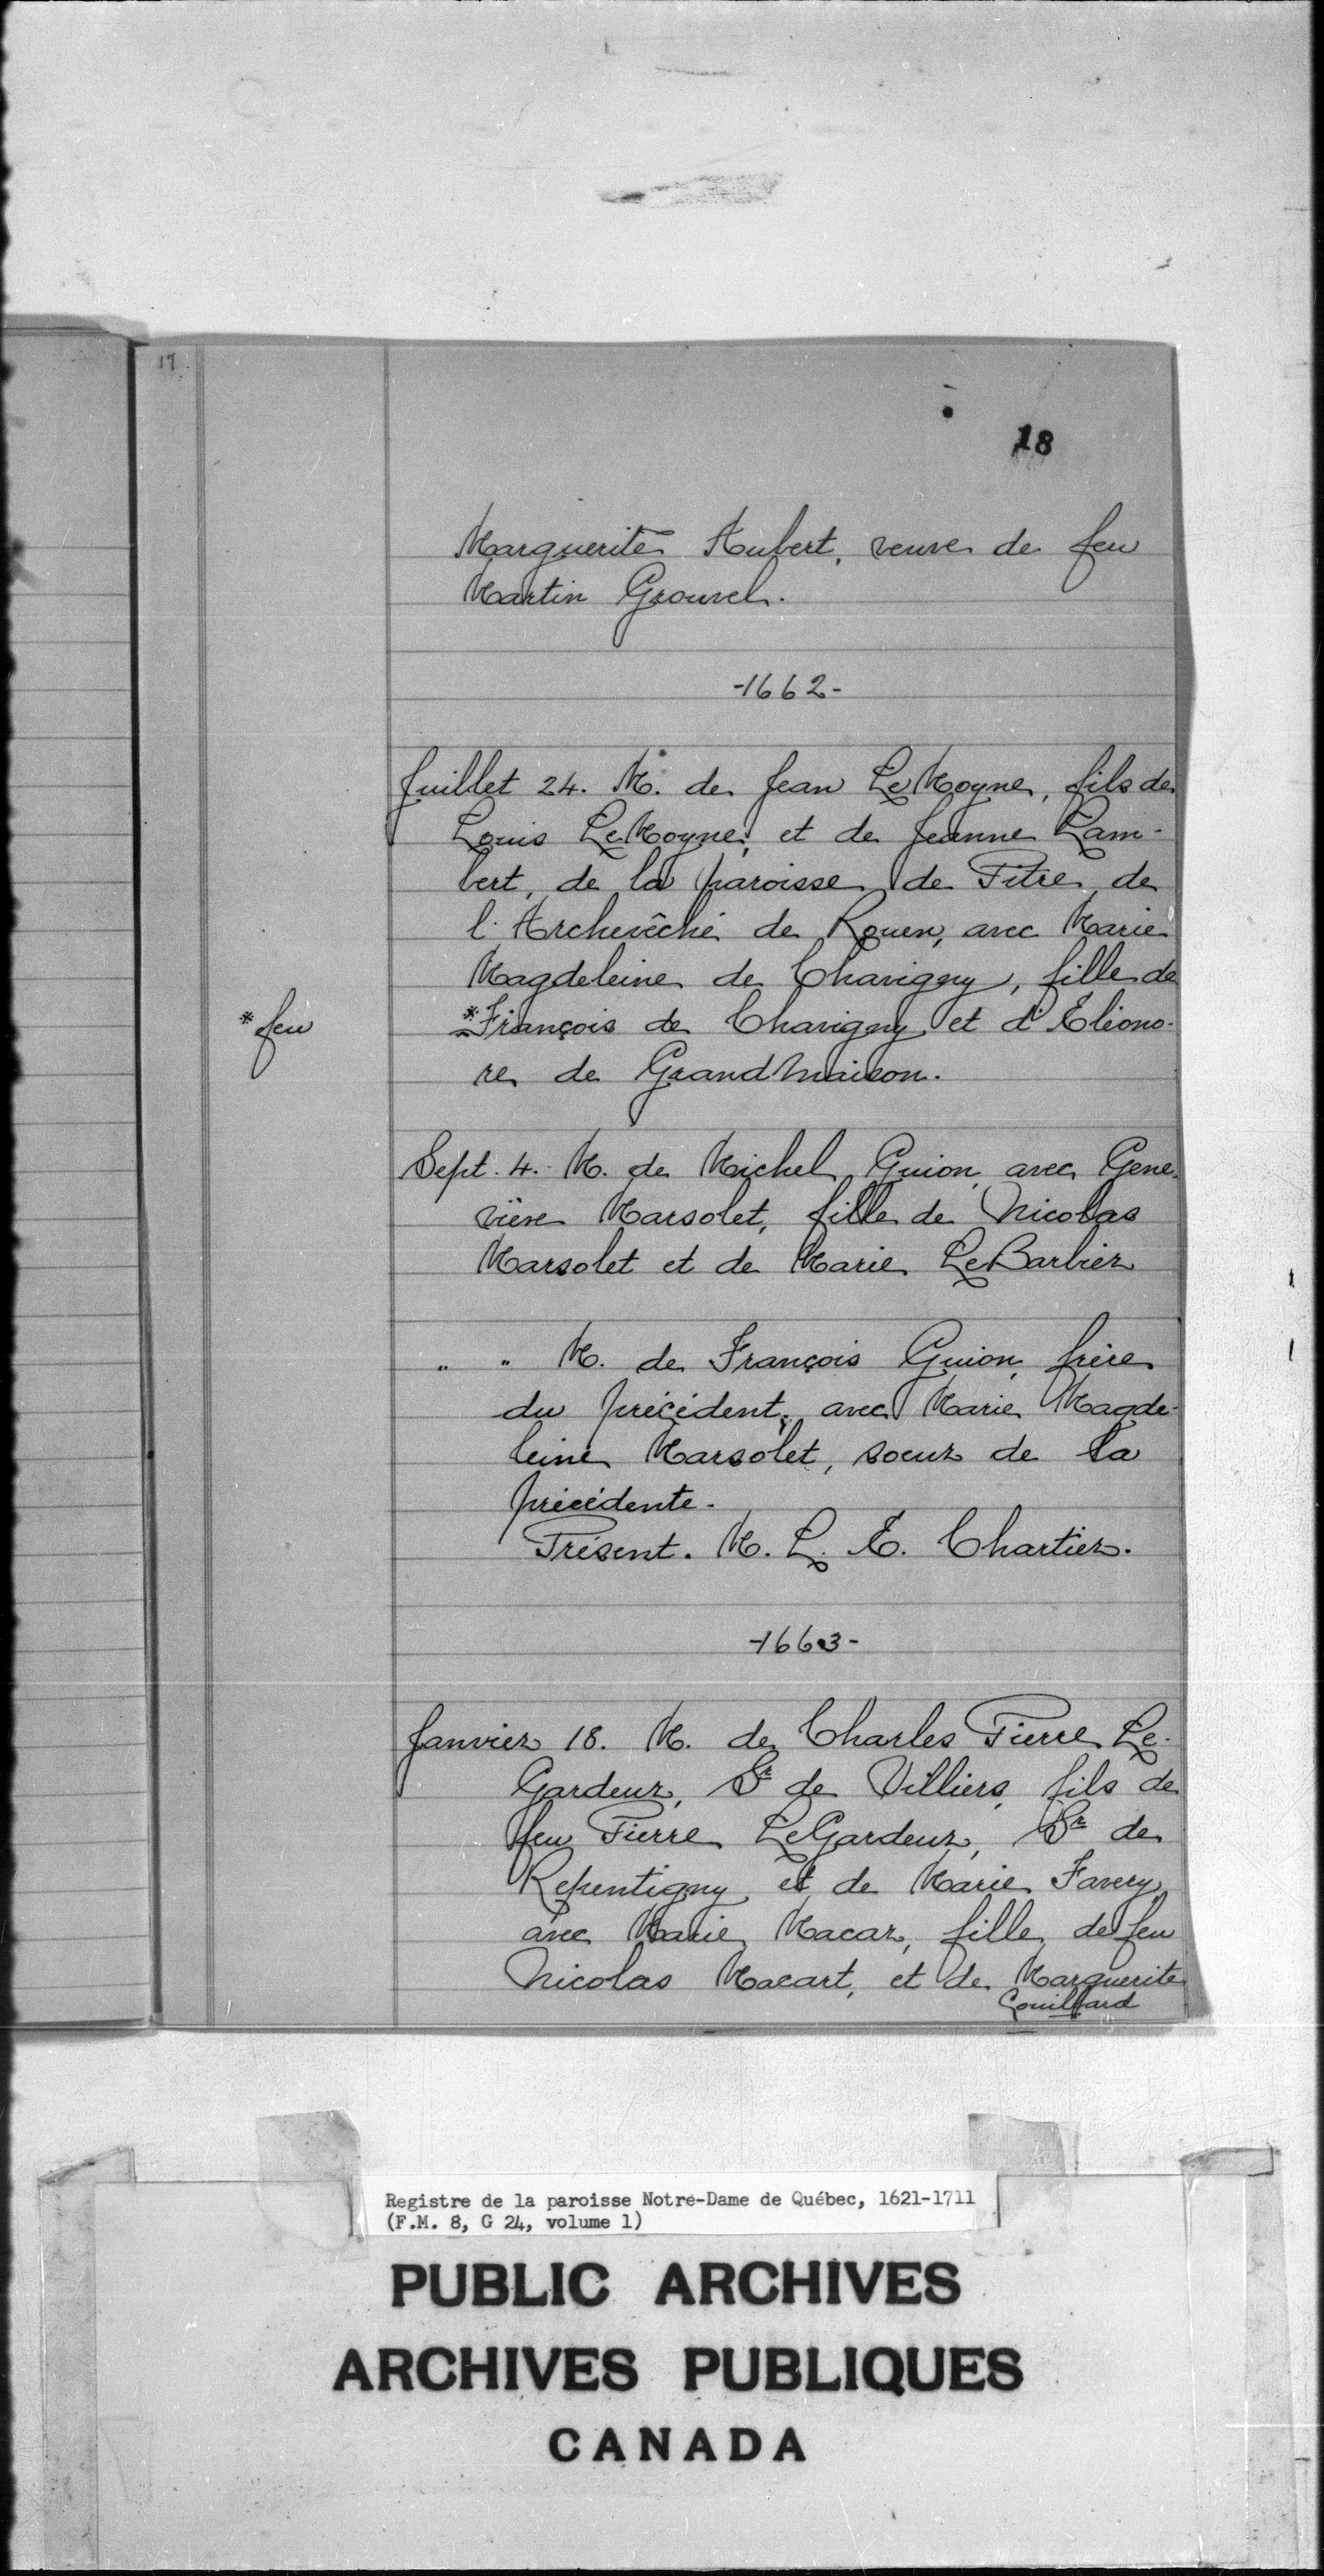 17
18
Marguerite Aubert, veuve de feu
Martin Grouvel.
-1662-
Juillet 24. M. de Jean LeMoyne, fils de
Louis LeMoyne, et de Jeanne Lam-
bert, de la paroisse de Pitre, de
l'Archevêché de Rouen, avec Marie
Magdeleine de Chavigny, fille de
*feu
*François de Chavigny et d'Eléono-
re de Grandmaison.
Sept. 4. M. de Michel Guion, avec Gene-
viève Marsolet, fille de Nicolas
Marsolet et de Marie LeBarbier
" " M. de François Guion, frère
du précédent, avec Marie Magde-
leine Marsolet, soeur de la
précédente.
Présent. M. L. E. Chartier.
-1663-
Janvier 18. M. de Charles Pierre Le-
Gardeur, Sr de Villiers, fils de
feu Pierre LeGardeur, Sr de
Repentigny et de Marie Favery,
avec Marie Macar, fille de feu
Nicolas Macart, et de Marguerite
Couillard
Registre de la paroisse Notre-Dame de Québec, 1621-1711
(F.M. 8, G 24, volume 1)
PUBLIC ARCHIVES
ARCHIVES PUBLIQUES
CANADA